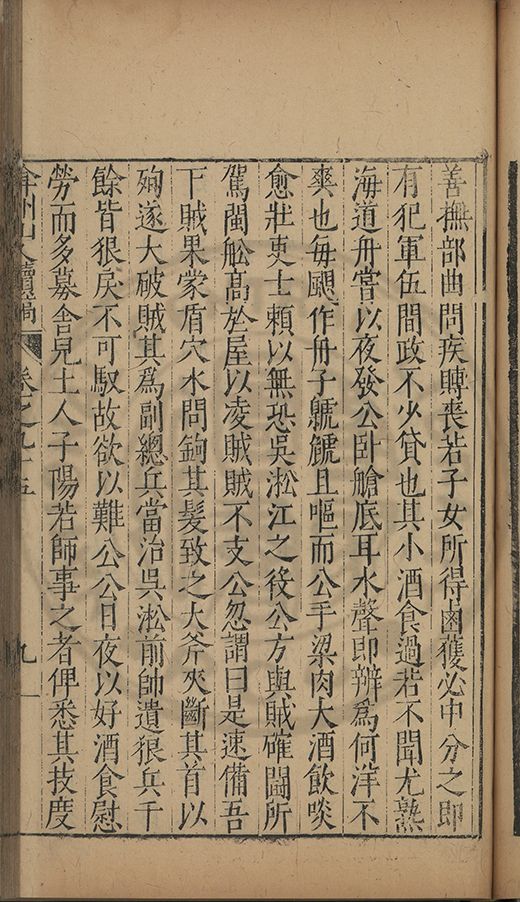 善撫部曲問疾賻喪若子女所得鹵獲必中分之即
有犯軍伍間政不少貸也其小酒食過若不聞尤熟
海道舟嘗以夜發公卧艙底耳水聲即辨爲何洋不
爽也每颶作舟子虩虩且嘔而公手梁肉大酒飲啖
愈壯吏士賴以無恐吳淞江之役公方與賊確鬪所
駕閩舩高於屋以凌賊賊不支公忽謂曰是速備吾
下賊果蒙盾穴水問鉤其髮致之大斧夾斷其首以
殉遂大破賊其爲副總兵當治吳淞前帥遺狼兵千
餘皆狠戾不可馭故欲以難公公日夜以好酒食慰
勞而多募舍兒土人子陽若師事之者俾悉其技度
弇州山人續稿
卷之九十五
九